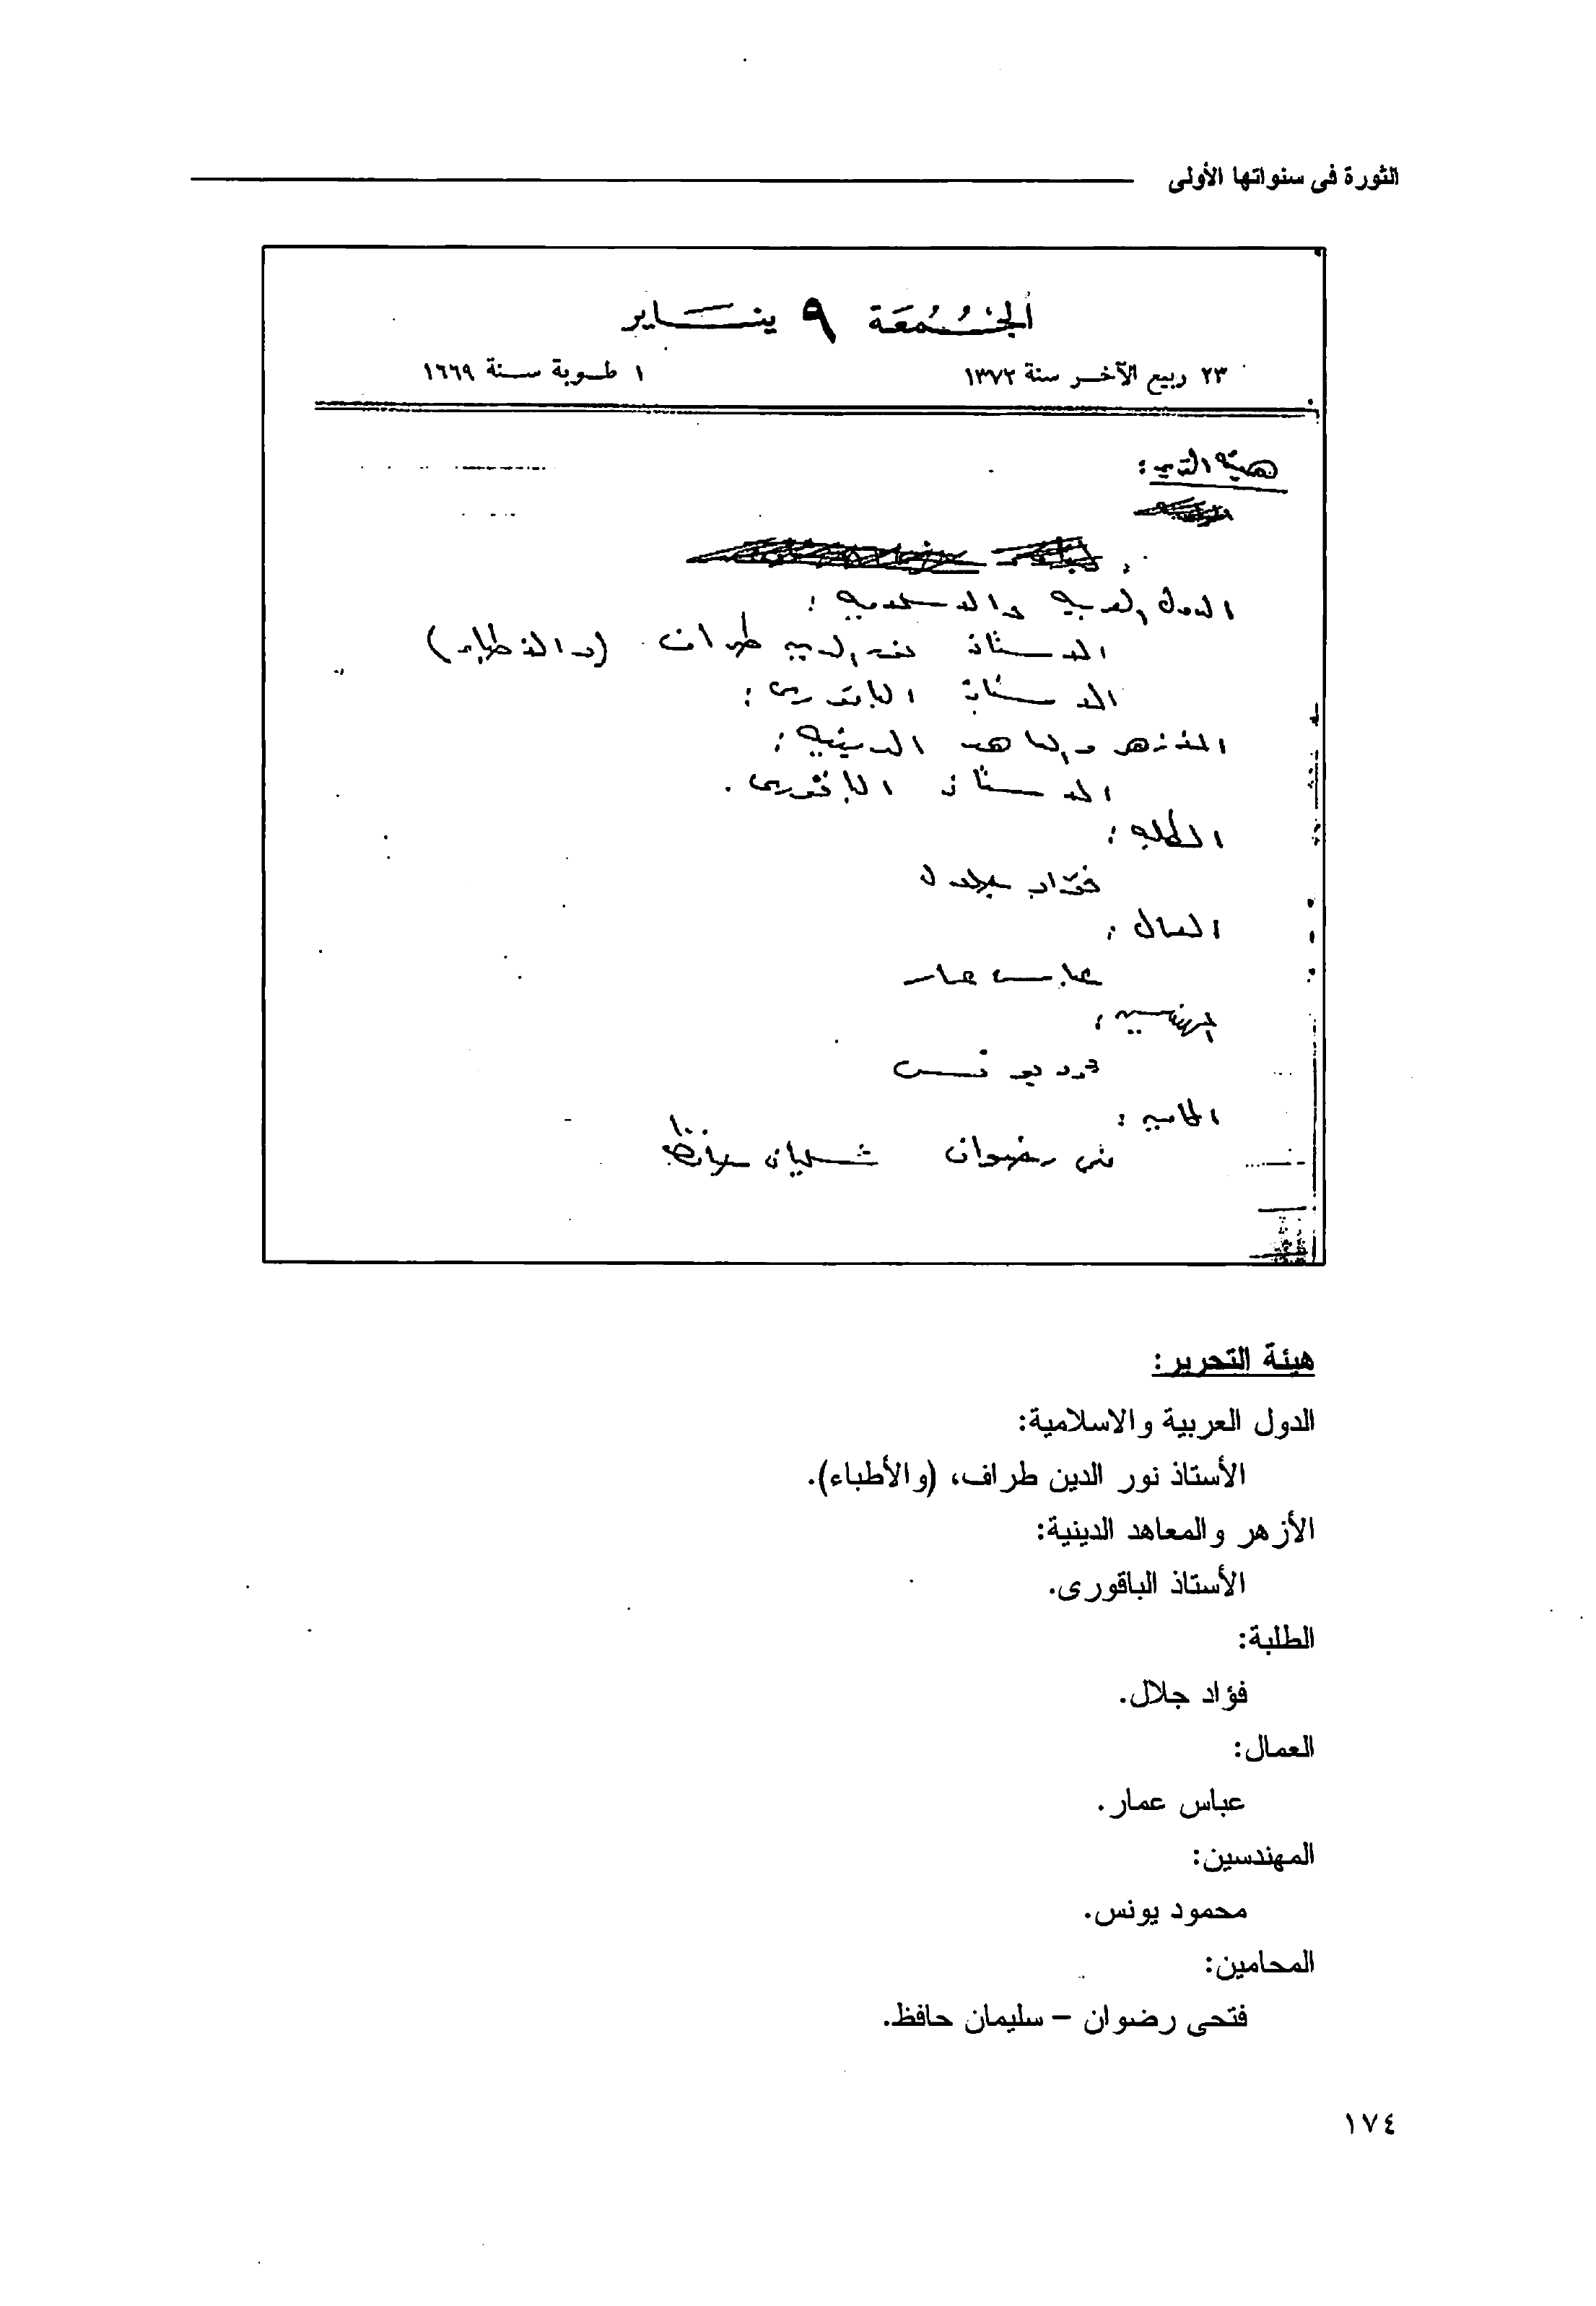 الثورة فى سنواتها الأولى
الجمعة ٩ يناير
٢٣ ربيع الآخر سنة ١٣٧٢ ١ طوبة سنة ١٦٦٩
هيئة التحرير:
الدول العربية والاسلامية:
الاستاذ نور الدين طراف (والأطباء)
الاستاذ الباقورى:
الأزهر والمعاهد الدينية:
الاستاذ الباقورى.
الطلبه:
فؤاد جلال
العمال:
عباس عمار
المهندسين:
محمود يونس
المحامين:
فتحى رضوان سليمان حافظ
هيئة التحرير:
الدول العربية والاسلامية:
الأستاذ نور الدين طراف، (والأطباء).
الأزهر والمعاهد الدينية:
الأستاذ الباقورى.
الطلبة:
فؤاد جلال.
العمال:
عباس عمار.
المهندسين:
محمود يونس.
المحامين:
فتحى رضوان – سليمان حافظ.
١٧٤